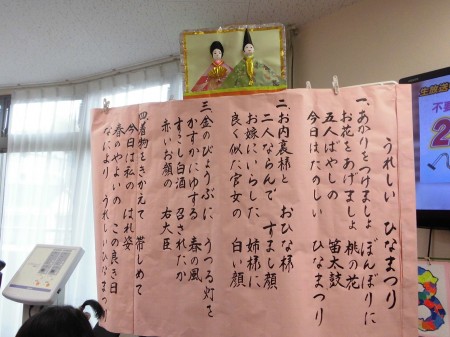 うれしい ひなまつり
一、あかりをつけましょ ぼんぼりに
お花をあげましょ 桃の花
五人ばやしの 笛太鼓
今日はたのしい ひなまつり
二、お内裏様と おひな様
二人ならんで すまし顔
お嫁にいらした 姉様に
良く似た官女の 白い顔
三、金のびょうぶに うつる灯を
かすかにゆする 春の風
すこし白酒 召されたか
赤いお顔の 右大臣
四、着物をきかえて 帯しめて
今日は私の はれ姿
春のやよいの この良き日
なにより うれしいひなまつ
生放送
不
2